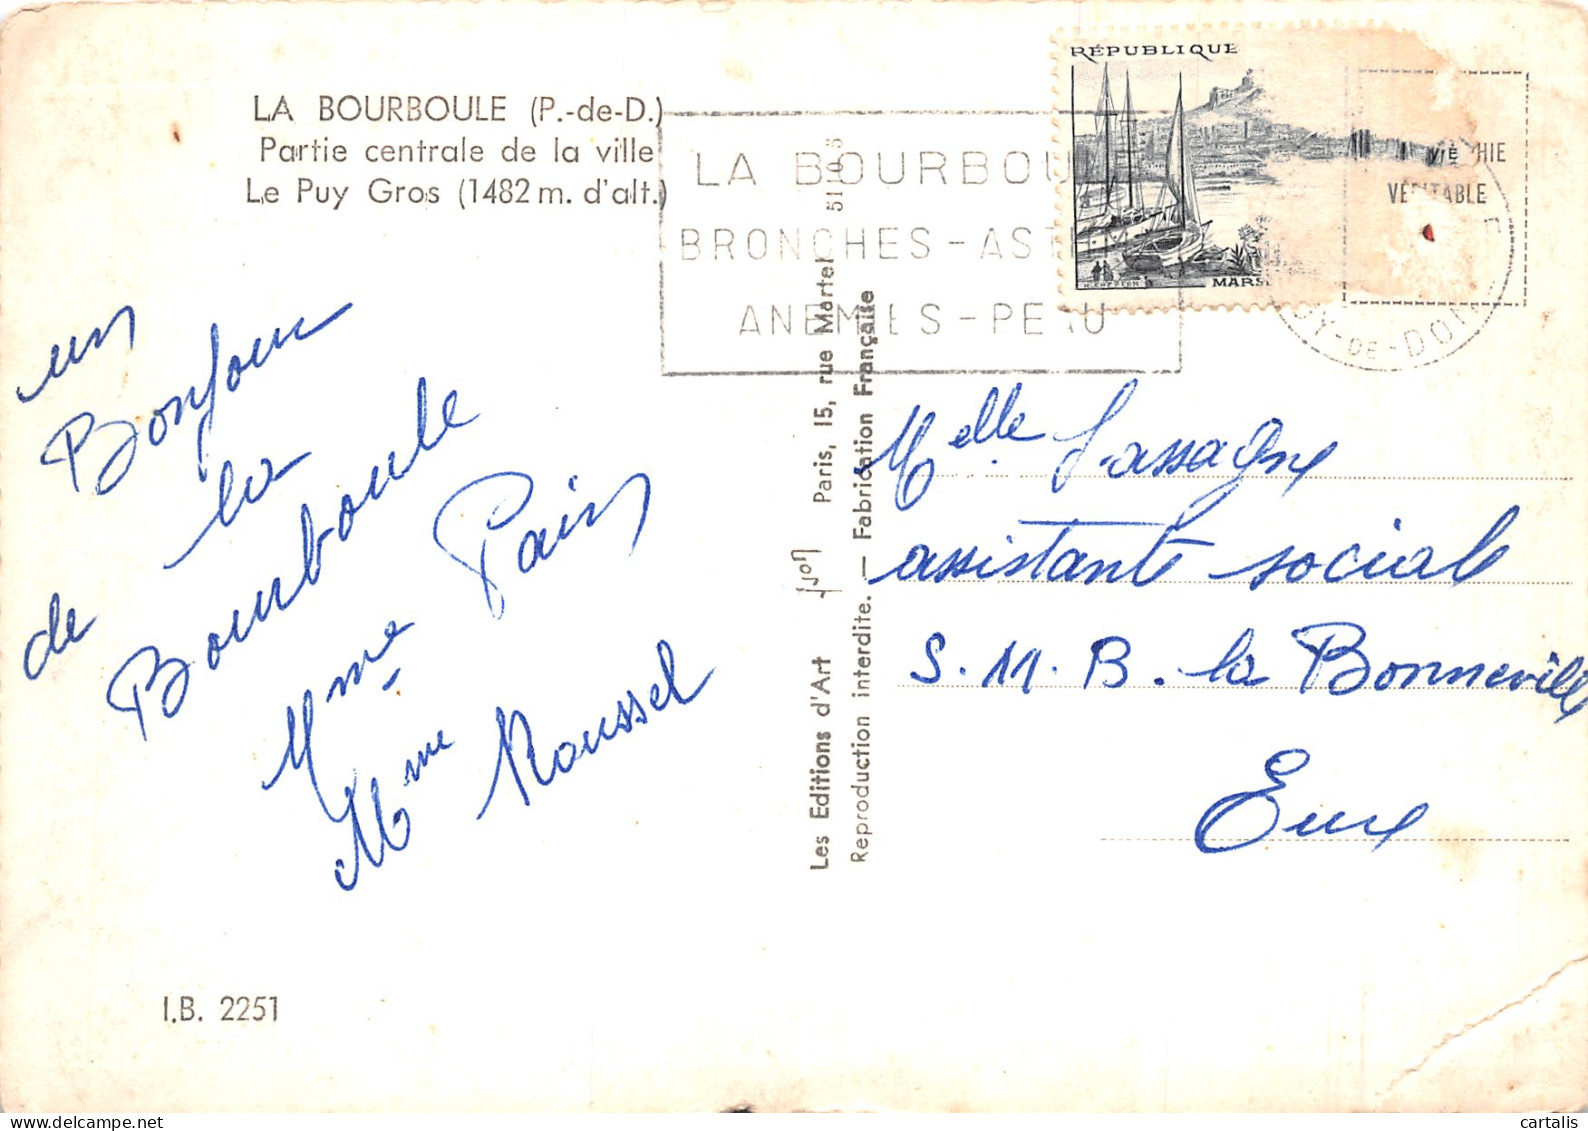 LA BOURBOULE (P.-de-D.)
Partie centrale de la ville
Le Puy Gros (1482 m. d'alt.)
RÉPUBLIQUE
MARS
LA BOURBOU
BRONCHES - AST
ANEMIES - PEAU
VÉRITABLE
PUY-DE-DOME
un
Bonjour
de la
Bourboule
Mme Pain
Mme Roussel
I.B. 2251
Les Editions d'Art Yvon Paris, 15, rue Martel 51-0-5
Reproduction interdite. — Fabrication Française
Melle Lassagne
assistante sociale
S. M. B. la Bonneville
Eure
cartalis